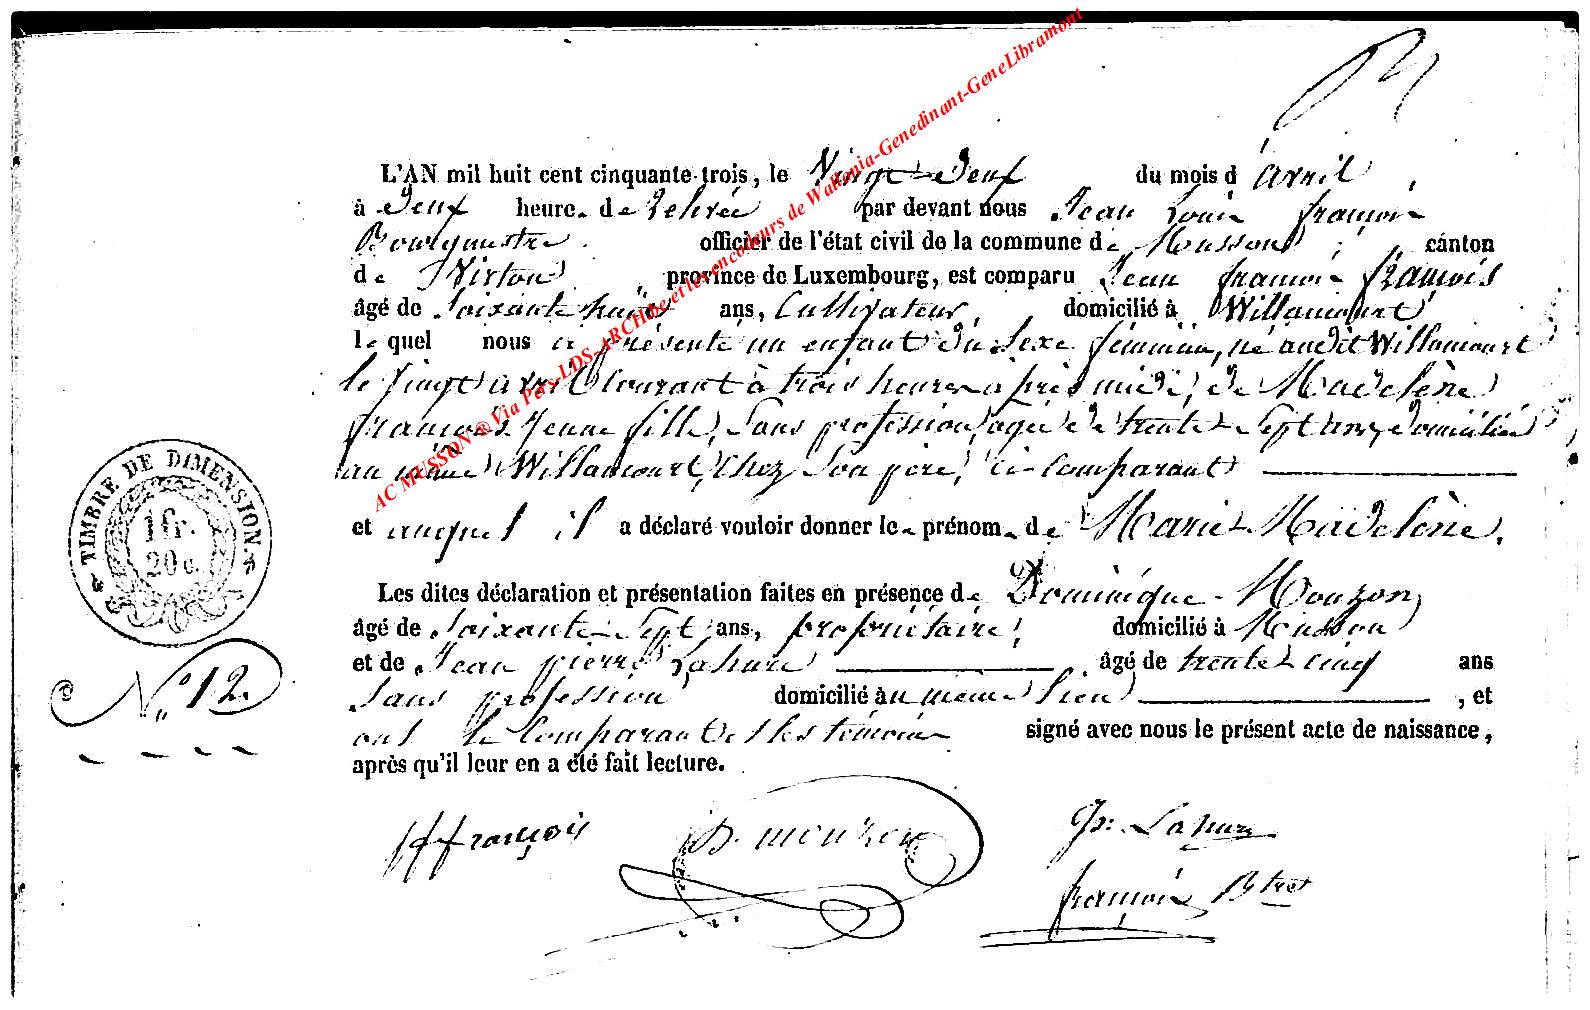 L'AN mil huit cent cinquante-trois, le Vingt-Deux du mois d'avril,
à Deux heure- de relevée par devant nous Jean Louis françois
Bourgmestre officier de l'état civil de la commune de Musson, canton
de Virton, province de Luxembourg, est comparu Jean françois françois
âgé de Soixante huit ans, Cultivateur, domicilié à Willancourt
lequel nous a présenté un enfant du Sexe féminin, né audit Willancourt
le vingt avril Courant à trois heures après midi, de Madelène
françois Jeune fille, Sans profession, agée de trente-Sept ans, domiciliée
au même Willancourt, chez Son père, ci-Comparant
et auquel il a déclaré vouloir donner le- prénom- de Marie-Madelène.
Les dites déclaration et présentation faites en présence de Dominique Mouzon
âgé de Soixante-Sept ans, propriétaire, domicilié à Musson
et de Jean pierre Lahure, âgé de trente-cinq ans
Sans profession domicilié au même lieu, et
ont le Comparant et les témoins signé avec nous le présent acte de naissance,
après qu'il leur en a été fait lecture.
TIMBRE DE DIMENSION.
1 fr.
20 c.
N° 12.
JF françois D. mouzon Jp: Lahure
françois Btret
AC MUSSON ® Via Pers-LDS-ARCHive et les encodeurs de Wallonia-Genedinant-GeneLibramont